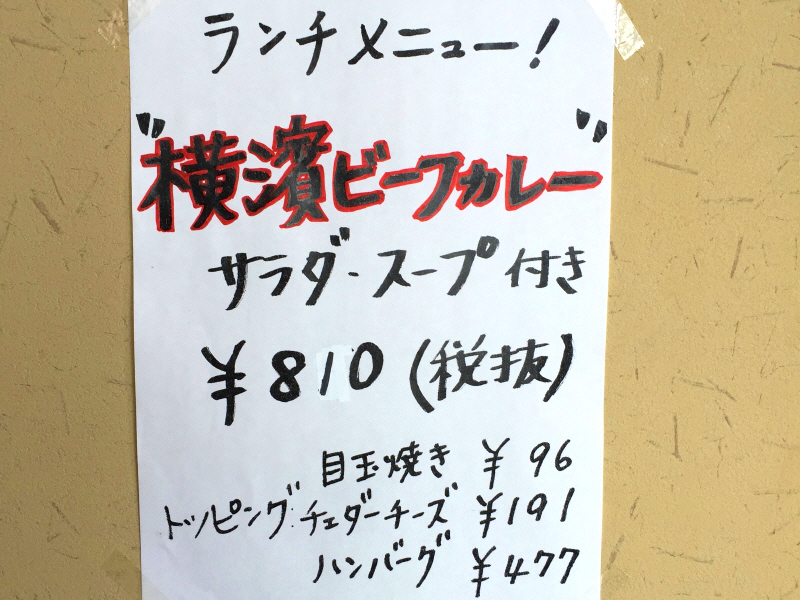 ランチメニュー!
"横濱ビーフカレー"
サラダ・スープ付き
¥810(税抜)
目玉焼き ¥96
トッピング:チェダーチーズ ¥191
ハンバーグ ¥477